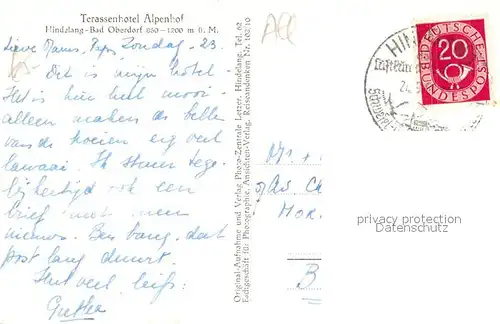 Terassenhotel Alpenhof
Hindelang-Bad Oberdorf 850-1200 m ü. M.
Lieve Mams, Paps Zondag - 23
Dit is mijn hotel.
Het is hier heel mooi
alleen maken de bellen
van de koeien erg veel
lawaai. Ik stuur tege-
lijkertijd ook een
brief met meer
nieuws. Ben bang dat
post lang duurt.
Heel veel liefs:
Original-Aufnahme und Verlag Photo-Zentrale Letzer, Hindelang, Tel. 62
Fachgeschäft für Photographie, Ansichten-Verlag, Reiseandenken Nr. 10210
HIN
24.
DEUTSCHE
BUNDESPOST
20
Mrs +
MOR
B
privacy protection
Datenschutz